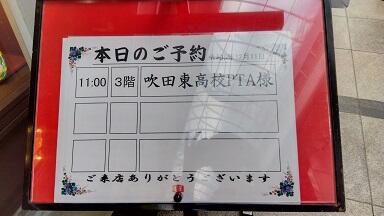 本日のご予約
11:00 3階 吹田東高校PTA様
ご来店ありがとうございます